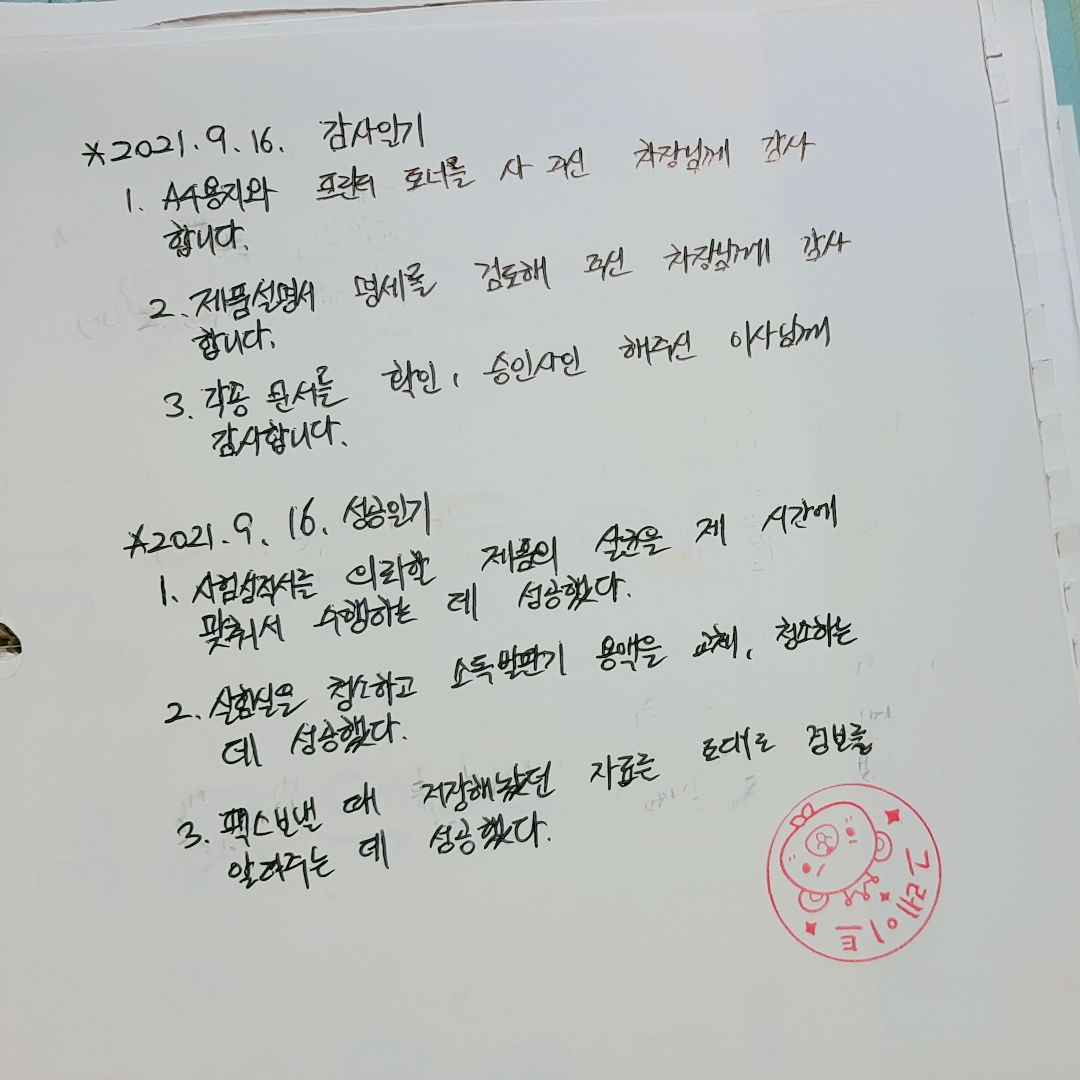 *2021.9.16. 감사일기
1. A4용지와 프린터 토너를 사 주신 차장님께 감사
합니다.
2. 제품설명서 명세를 검토해 주신 차장님께 감사
합니다.
3. 각종 문서를 확인, 승인사인 해주신 이사님께
감사합니다.
*2021.9.16. 성공일기
1. 시험성적서를 의뢰한 제품의 실험을 제 시간에
맞춰서 수행하는 데 성공했다.
2. 실험실을 청소하고 소독발판기 용액을 교체, 청소하는
데 성공했다.
3. 팩스보낼 때 저장해놨던 자료를 토대로 정보를
알려주는 데 성공했다.
그레이트